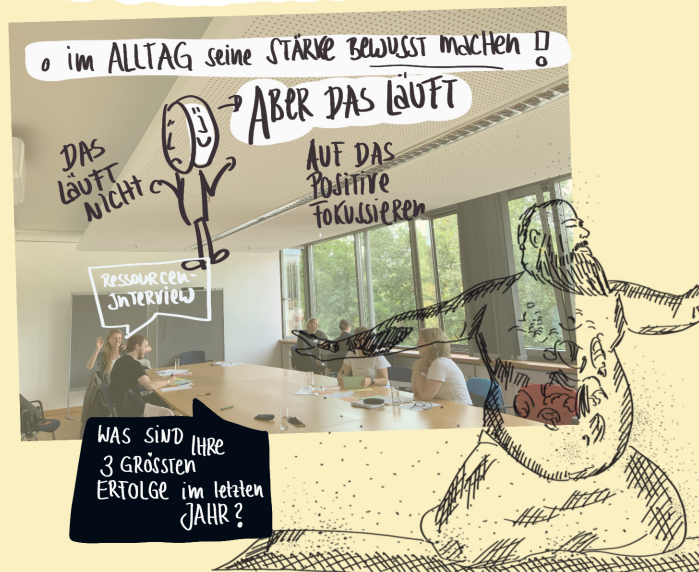 • im ALLTAG seine STÄRKE BEWUSST MACHEN !
ABER DAS LÄUFT
DAS
LÄUFT
NICHT
AUF DAS
POSITIVE
FOKUSSIEREN
RESSOURCEN-
INTERVIEW
WAS SIND IHRE
3 GRÖSSTEN
ERFOLGE im letzten
JAHR?